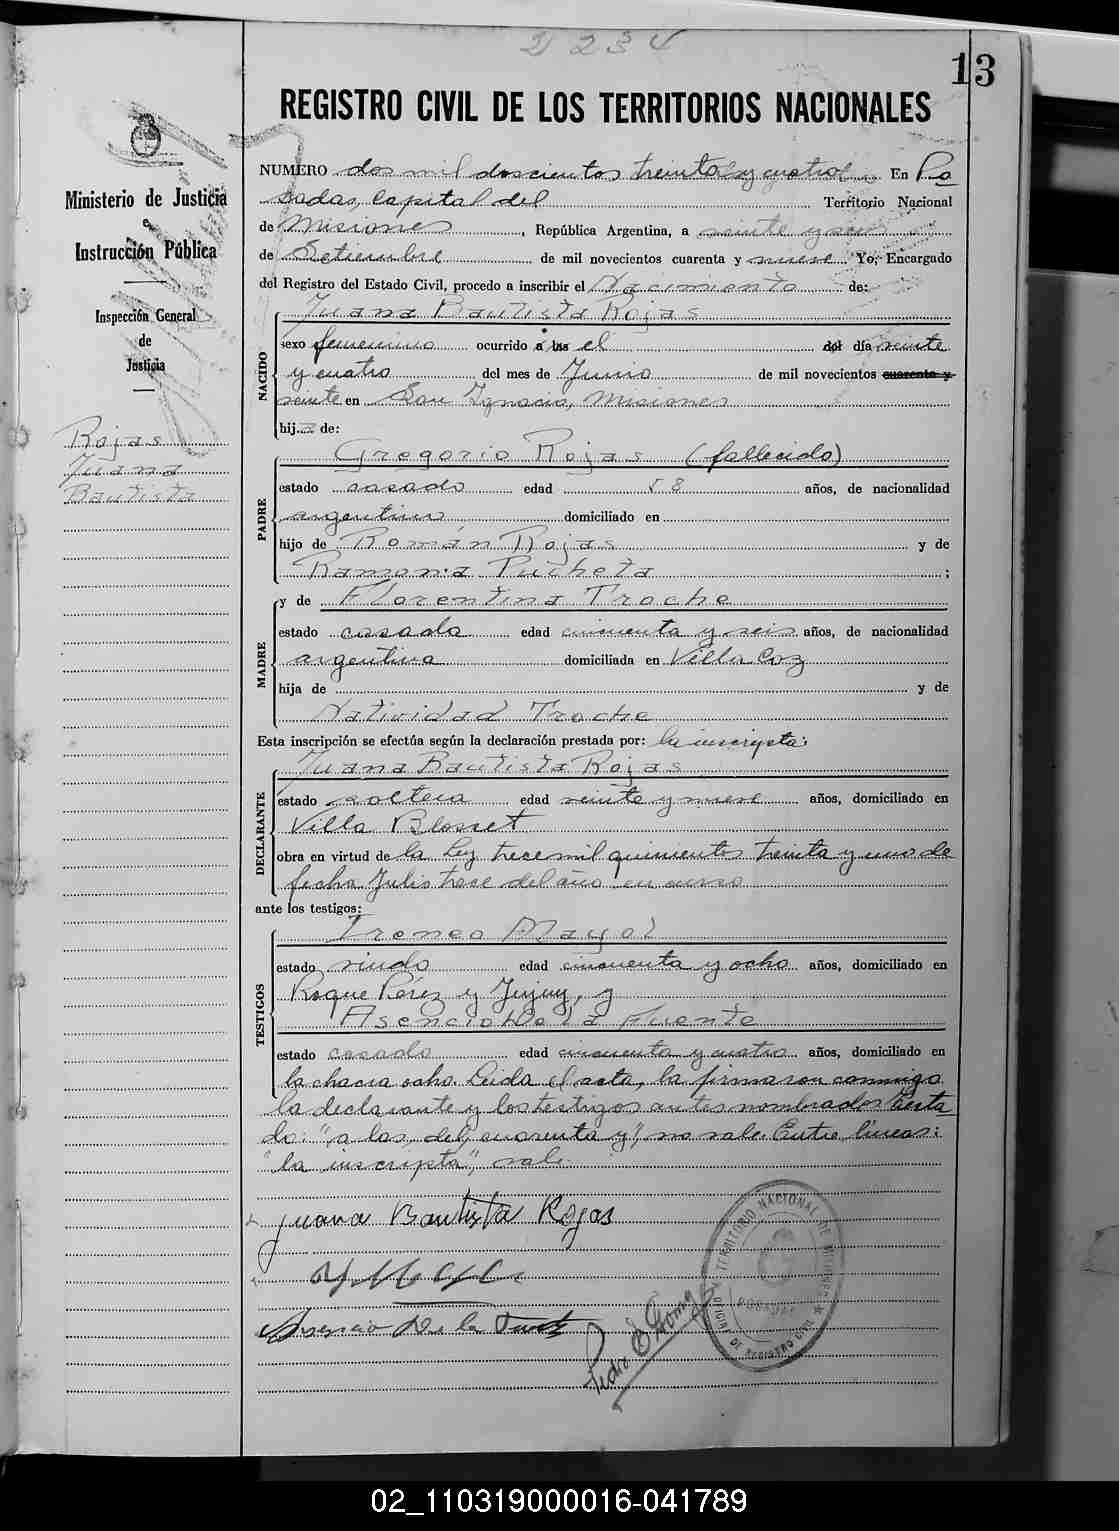 2 2 3 4
13
REGISTRO CIVIL DE LOS TERRITORIOS NACIONALES
Ministerio de Justicia
e
Instrucción Pública
Inspección General
de
Justicia
Rojas
Juana
Bautista
NUMERO dos mil doscientos treinta y cuatro En Po
sadas, Capital del Territorio Nacional
de Misiones, República Argentina, a veinte y seis
de Setiembre de mil novecientos cuarenta y nueve Yo, Encargado
del Registro del Estado Civil, procedo a inscribir el Nacimiento de:
NACIDO
Juana Bautista Rojas
sexo femenino ocurrido a las el del día veinte
y cuatro del mes de Junio de mil novecientos cuarenta y
veinte en San Ignacio, Misiones
hija de:
PADRE
Gregorio Rojas (fallecido)
estado casado edad 58 años, de nacionalidad
argentino domiciliado en
hijo de Román Rojas y de
Ramona Pucheta ;
MADRE
y de Florentina Troche
estado casada edad cincuenta y seis años, de nacionalidad
argentina domiciliada en Villa Coz
hija de y de
Natividad Troche
Esta inscripción se efectúa según la declaración prestada por: la inscripta:
DECLARANTE
Juana Bautista Rojas
estado soltera edad veinte y nueve años, domiciliado en
Villa Blosset
obra en virtud de la Ley trece mil quinientos treinta y uno de
fecha Julio trece del año en curso
ante los testigos:
TESTIGOS
Ireneo Mayol
estado viudo edad cincuenta y ocho años, domiciliado en
Roque Pérez y Jujuy, y
Asencio De la Fuente
estado casado edad cincuenta y cuatro años, domiciliado en
la chacra ocho. Leida el acta, la firmaron conmigo
la declarante y los testigos antes nombrados Testa
do: "a las, del, cuarenta y", no vale. Entre líneas:
"la inscripta", vale.
Juana Bautista Rojas
Asencio De la Fuente
Pedro E Gomez
TERRITORIO NACIONAL DE MISIONES
OFICINA DE REGISTRO CIVIL
POSADAS
02_110319000016-041789